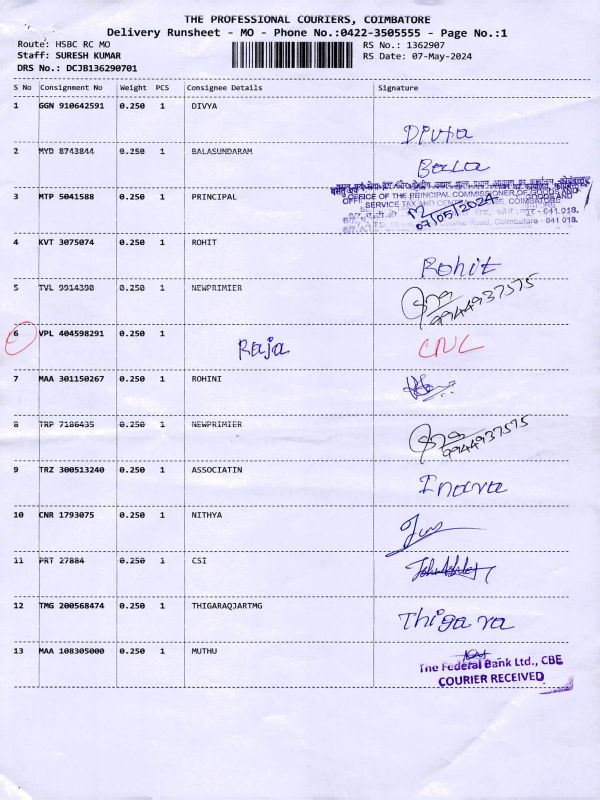 THE PROFESSIONAL COURIERS, COIMBATORE
Delivery Runsheet - MO - Phone No.:0422-3505555 - Page No.:1
Route: HSBC RC MO
RS No.: 1362907
Staff: SURESH KUMAR
RS Date: 07-May-2024
DRS No.: DCJB136290701
S No Consignment No Weight PCS Consignee Details Signature
1 GGN 910642591 0.250 1 DIVYA
Divya
2 MYD 8743844 0.250 1 BALASUNDARAM
Bala
3 MTP 5041588 0.250 1 PRINCIPAL
OFFICE OF THE PRINCIPAL COMMISSIONER OF GOODS AND
SERVICE TAX AND CENTRAL EXCISE, COIMBATORE
07/05/2024
Coimbatore - 641 018.
4 KVT 3075074 0.250 1 ROHIT
Rohit
5 TVL 9914390 0.250 1 NEWPRIMIER
9944937575
6 VPL 404598291 0.250 1
Raja CNC
7 MAA 301150267 0.250 1 ROHINI
8 TRP 7186435 0.250 1 NEWPRIMIER
9944937575
9 TRZ 300513240 0.250 1 ASSOCIATIN
Inava
10 CNR 1793075 0.250 1 NITHYA
11 PRT 27884 0.250 1 CSI
12 TMG 200568474 0.250 1 THIGARAQJARTMG
Thigara
13 MAA 108305000 0.250 1 MUTHU
The Federal Bank Ltd., CBE
COURIER RECEIVED